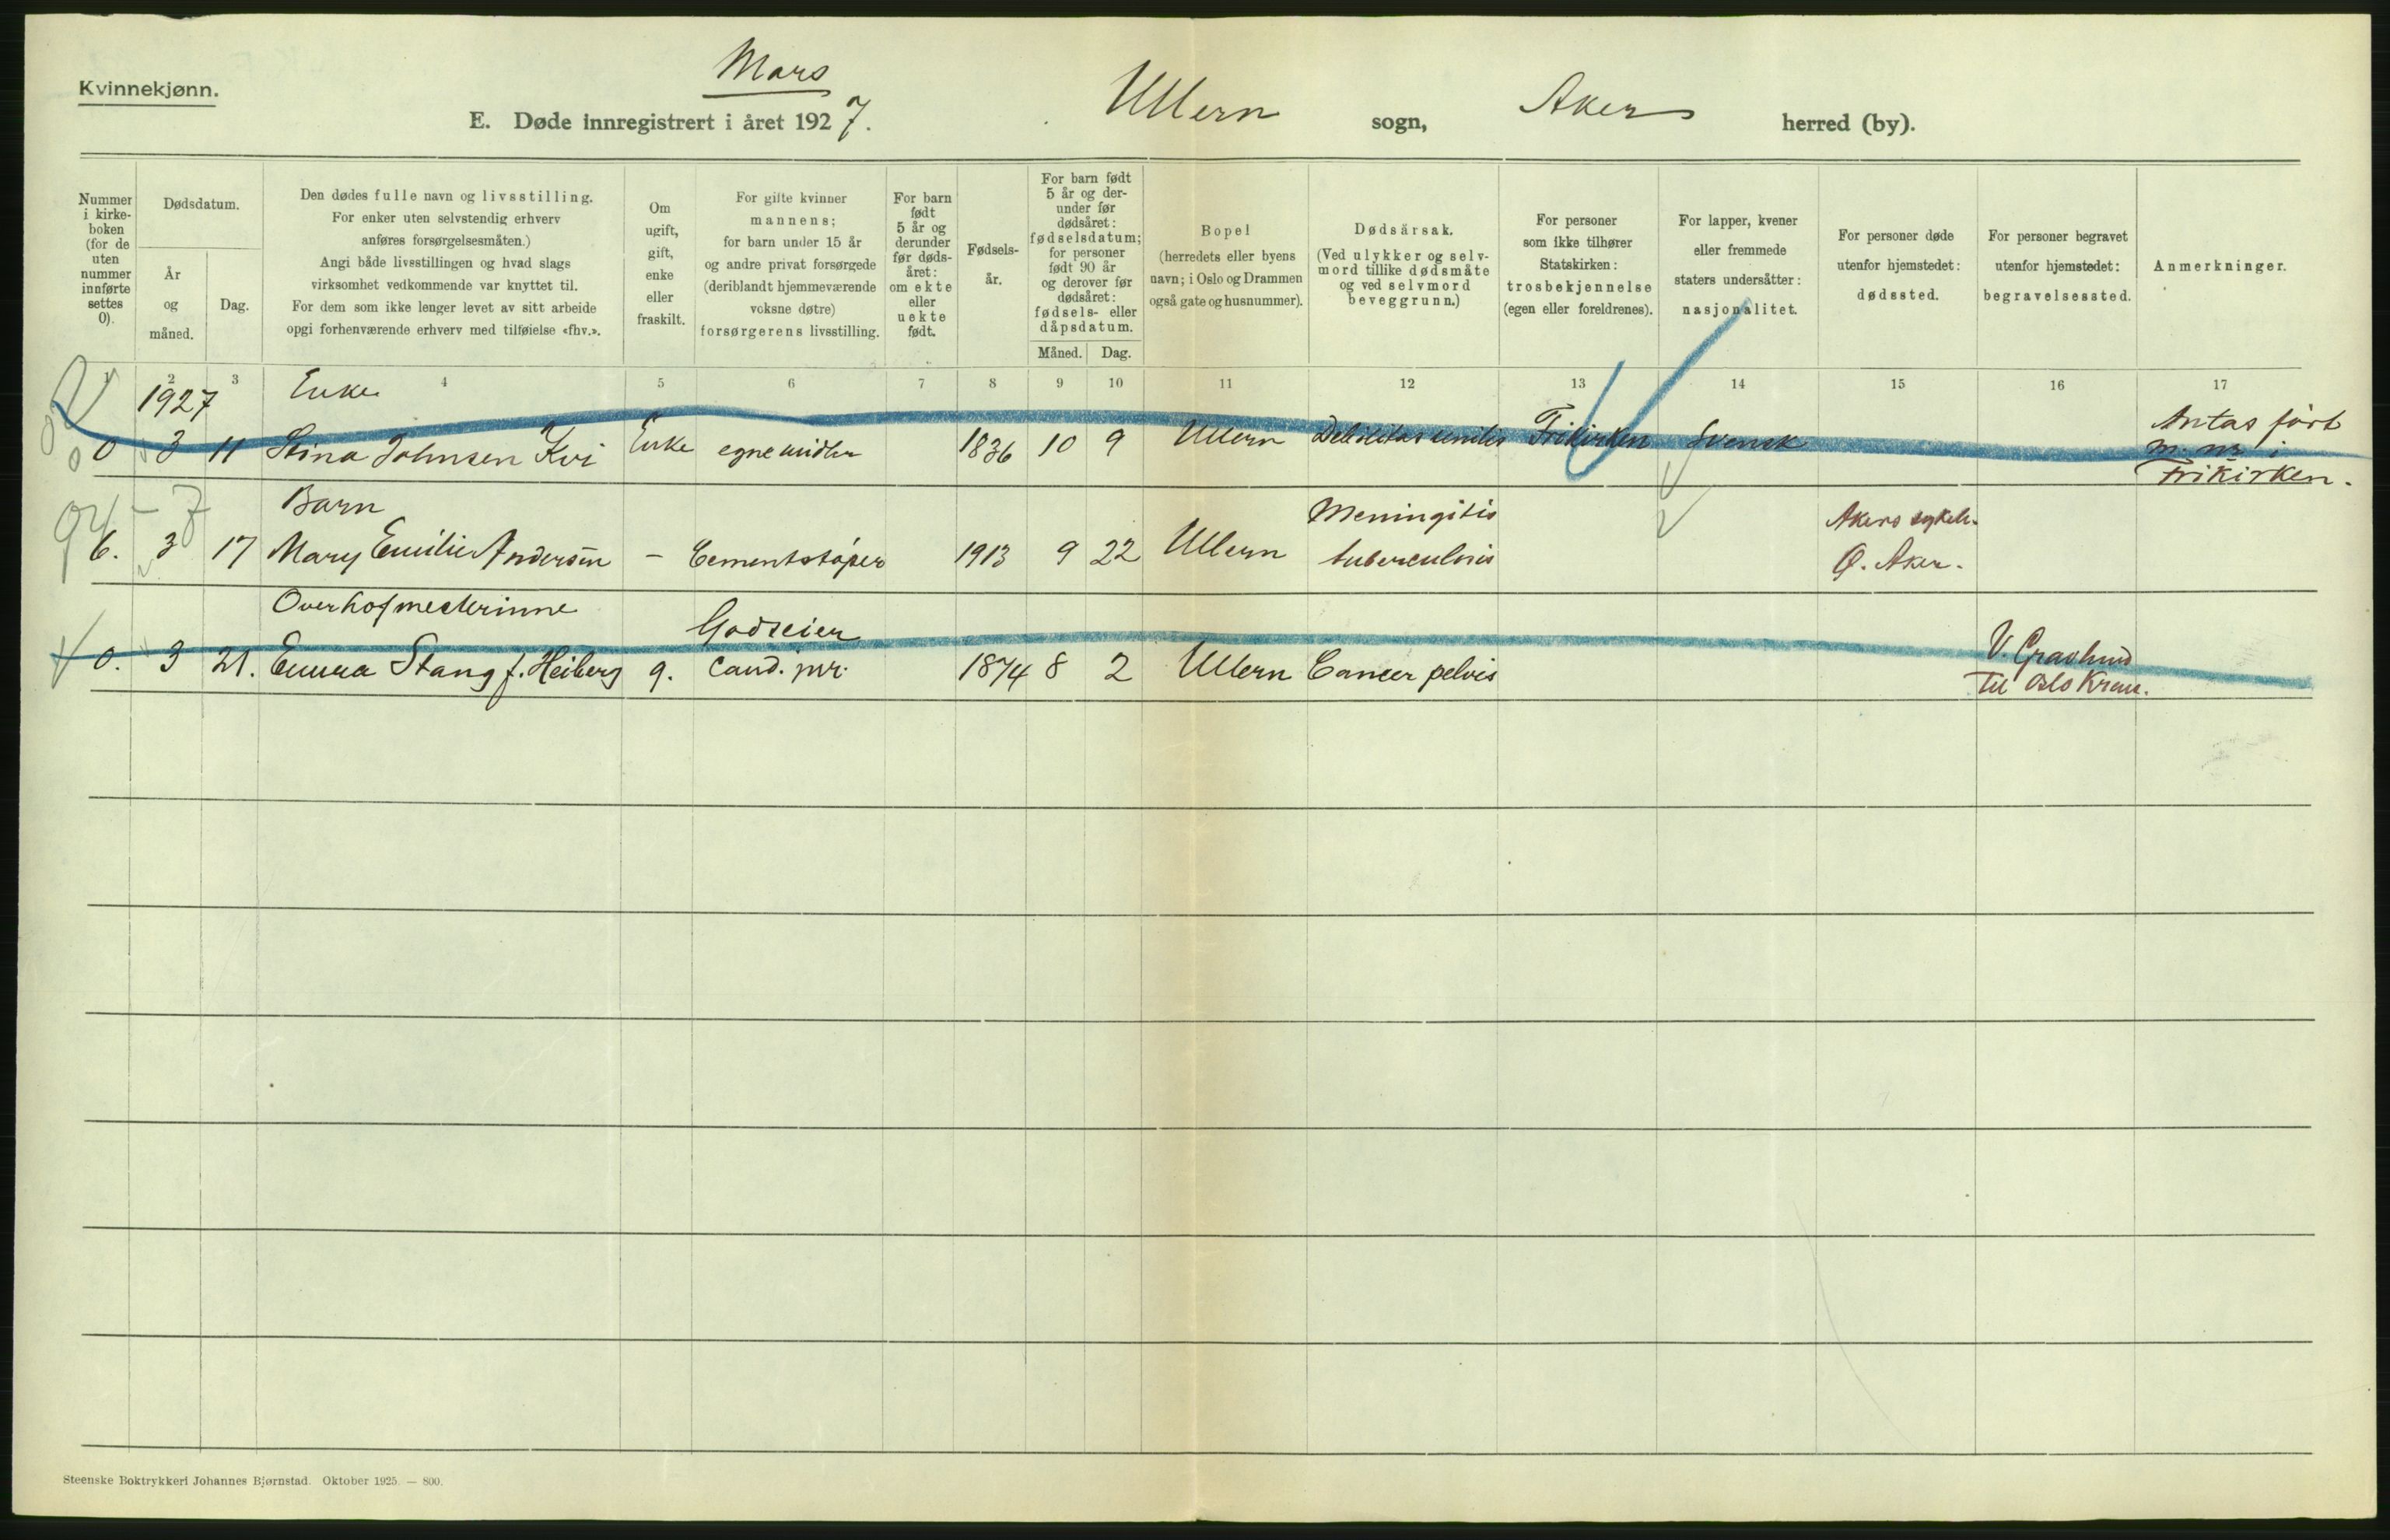 Kvinnekjønn.
Mars
E. Døde innregistrert i året 1927.
Ullern sogn, Aker herred (by).
Nummer i kirkeboken (for de uten nummer innførte settes 0).
Dødsdatum.
År og måned.
Dag.
Den dødes fulle navn og livsstilling.
For enker uten selvstendig erhverv
anføres forsørgelsesmåten.)
Angi både livsstillingen og hvad slags
virksomhet vedkommende var knyttet til.
For dem som ikke lenger levet av sitt arbeide
opgi forhenværende erhverv med tilføielse «fhv.».
Om
ugift,
gift,
enke
eller
fraskilt.
For gifte kvinner
mannens;
for barn under 15 år
og andre privat forsørgede
(deriblandt hjemmeværende
voksne døtre)
forsørgerens livsstilling.
For barn
født
5 år og
derunder
før døds-
året:
om ekte
eller
uekte
født.
Fødsels-
år.
For barn født
5 år og der-
under før
dødsåret:
fødselsdatum;
for personer
født 90 år
og derover før
dødsåret:
fødsels- eller
dåpsdatum.
Måned. Dag.
Bopel
(herredets eller byens
navn; i Oslo og Drammen
også gate og husnummer).
Dødsårsak.
(Ved ulykker og selv-
mord tillike dødsmåte
og ved selvmord
beveggrunn.)
For personer
som ikke tilhører
Statskirken:
trosbekjennelse
(egen eller foreldrenes).
For lapper, kvener
eller fremmede
staters undersåtter:
nasjonalitet.
For personer døde
utenfor hjemstedet:
dødssted.
For personer begravet
utenfor hjemstedet:
begravelsessted.
Anmerkninger.
1 2 3 4 5 6 7 8 9 10 11 12 13 14 15 16 17
1927 Enke
0 3 11 Stina Johnsen Kvi Enke egne midler 1836 10 9 Ullern Debilitas senilis Frikirken Svensk Antas ført
m. nr. i
Frikirken.
Barn Meningitis Akers sykeh.
6. 3 17 Mary Emilie Andersen – Cementstøper 1913 9 22 Ullern tuberculosis Ø. Aker.
Overhofmesterinne Godseier V. Gravlund
0. 3 21. Emma Stang f. Heiberg g. cand. jur. 1874 8 2 Ullern Cancer pelvis Til Oslo Krem.
Steenske Boktrykkeri Johannes Bjørnstad. Oktober 1925. — 800.